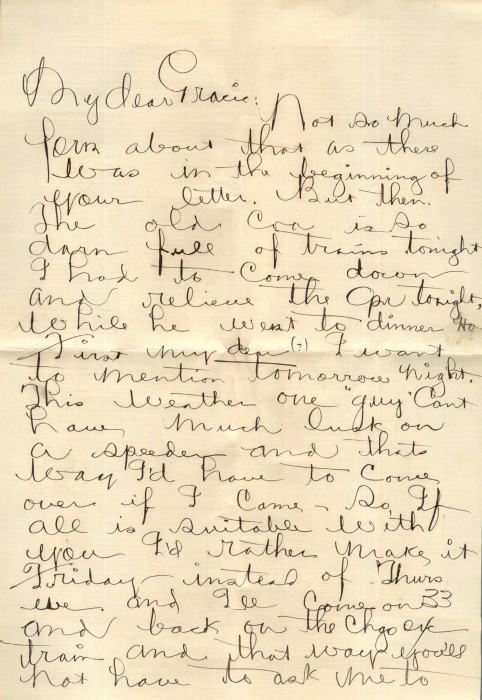 My dear Gracie:
Not so much
form about that as there
was in the beginning of
your letter. But then.
The old Coa is so
darn full of trains tonight
I had to come down
and relieve the Opr tonight,
while he went to dinner
First my dear (?) I want
to mention tomorrow night.
This weather one "guy" can't
have much luck on
a speeder and thats
way I'd have to come
over if I came - So If
all is suitable with
you I'd rather make it
Friday - instead of Thurs
eve. and I'll come on 33
and back on the Chgo ex
train and that way you'll
not have to ask me to